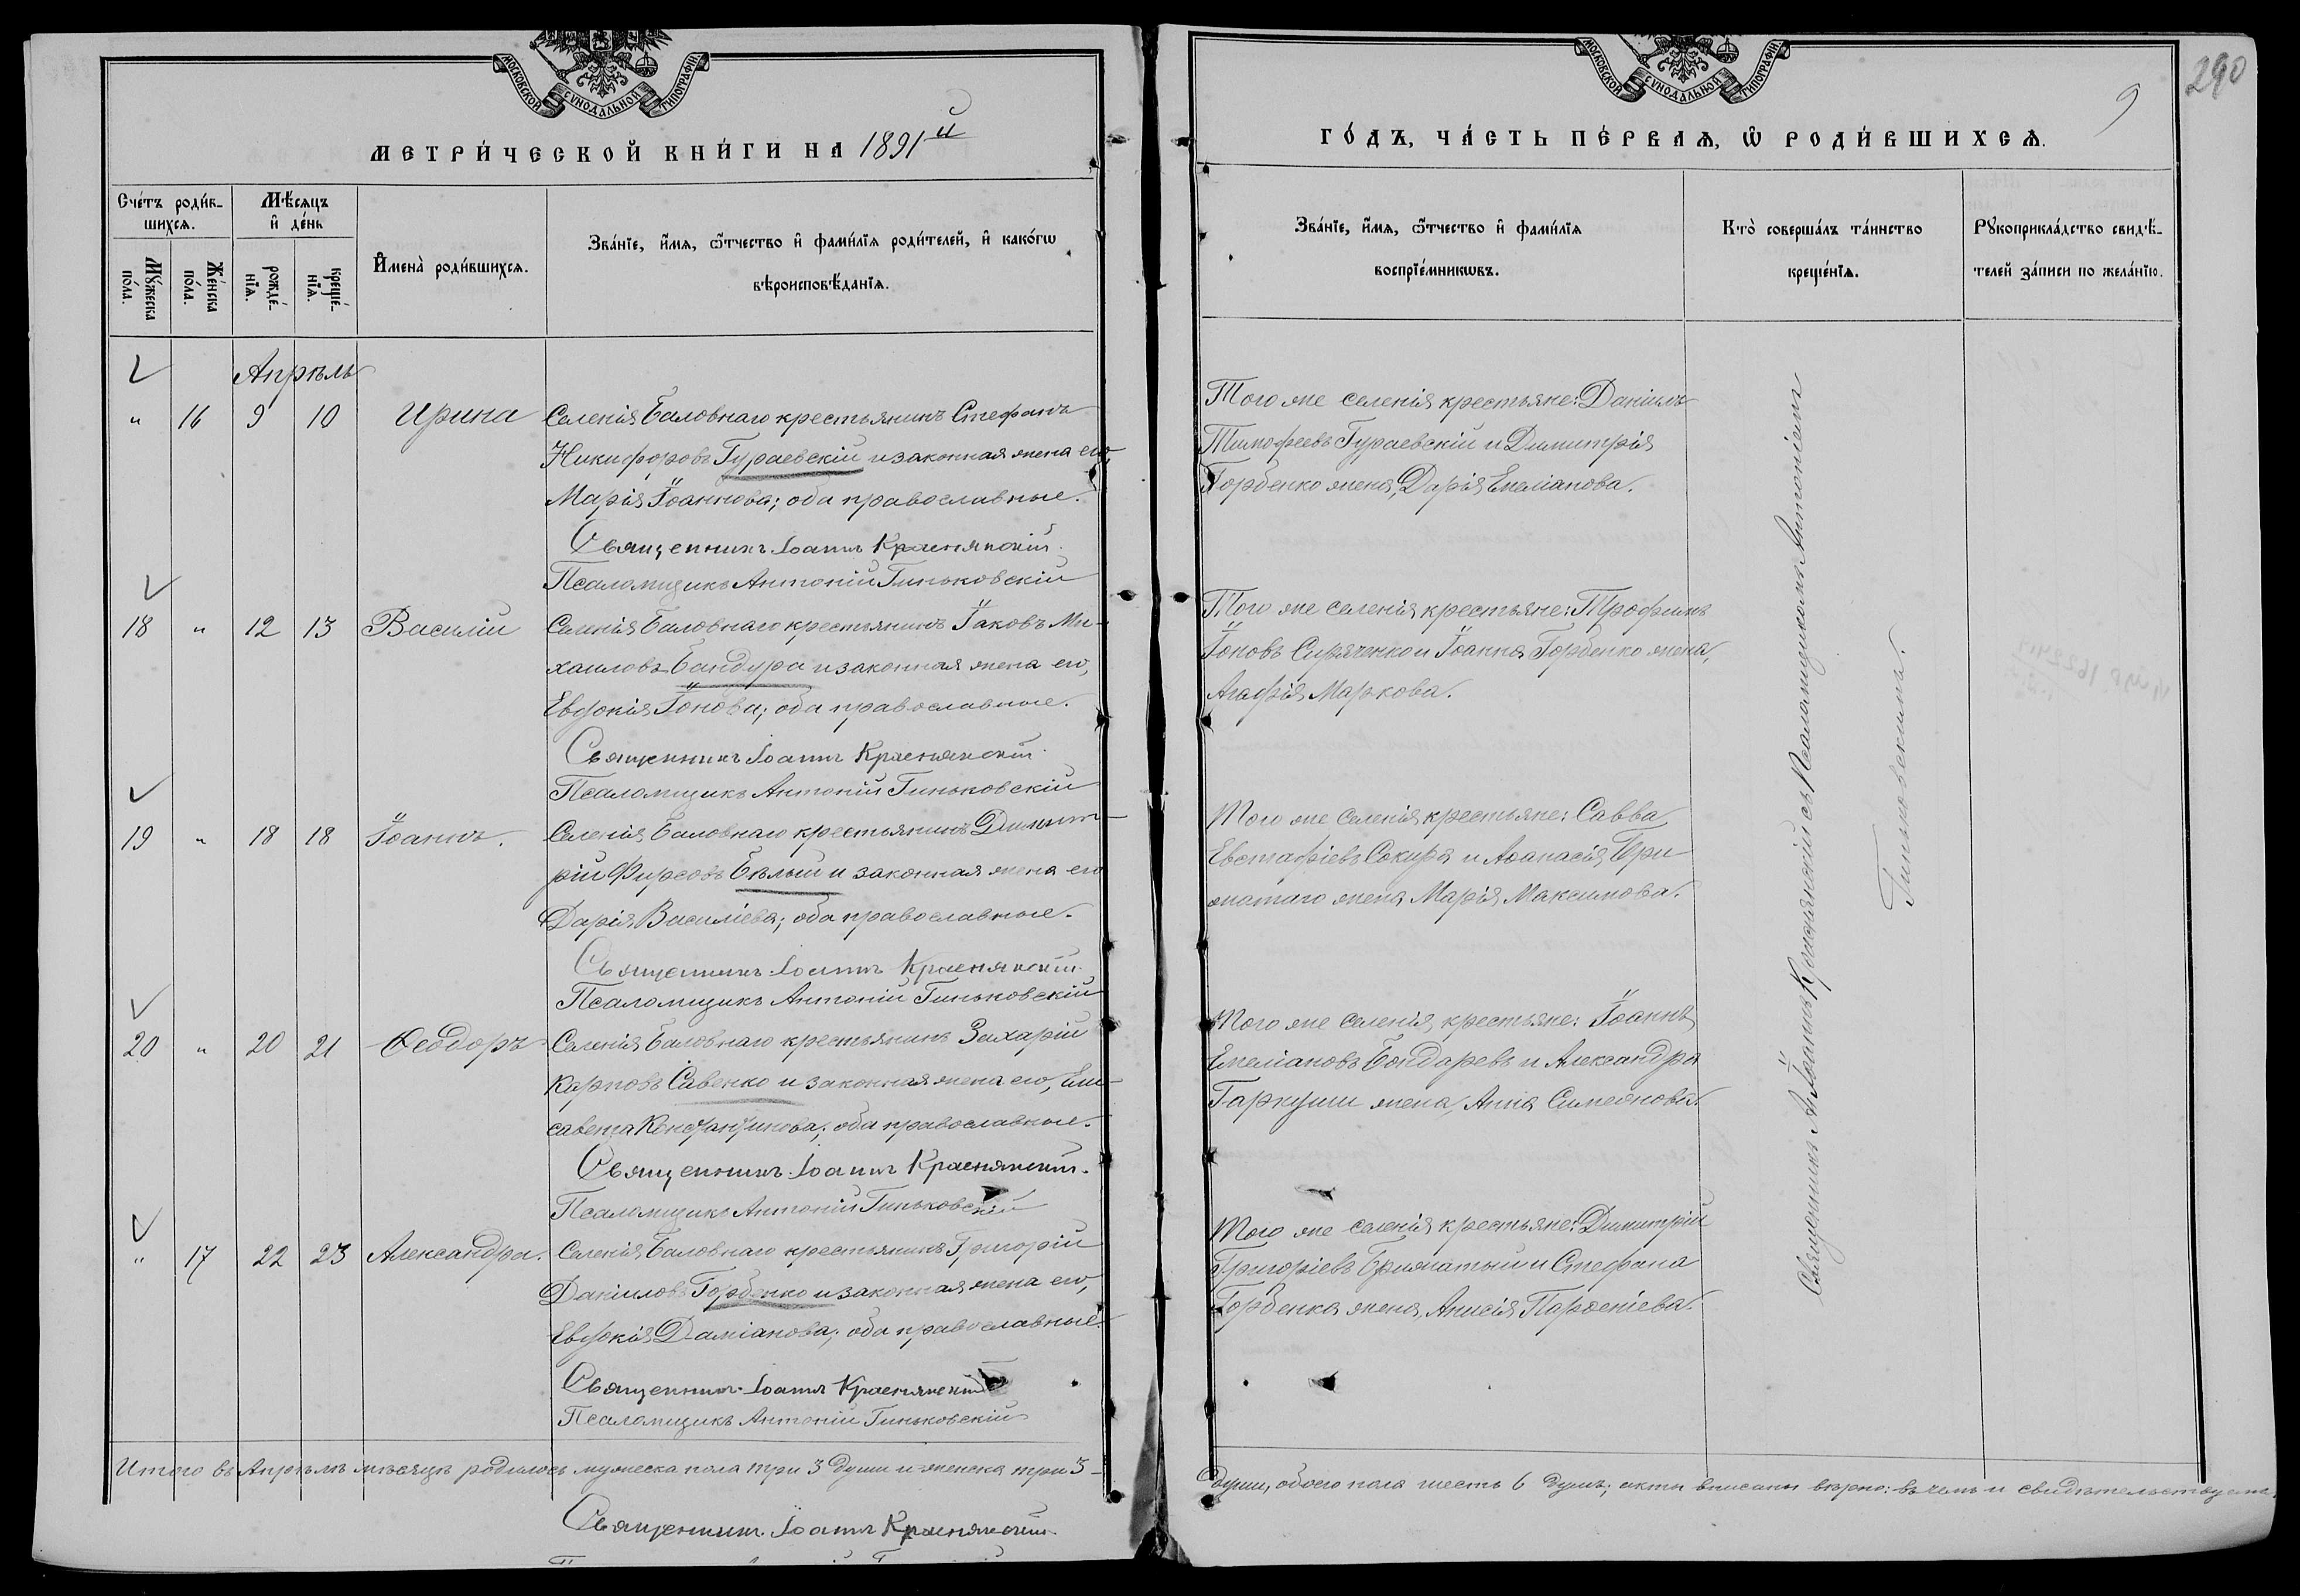 МОСКОВСКОЙ СѴНОДАЛЬНОЙ ТИПОГРАФІИ
МЕТРИ́ЧЕСКОЙ КНИ́ГИ НА 1891й
Сче́тъ роди́в-
шихсѧ.
Мѣ́сѧцъ
и҆ де́нь
Мꙋ́жеска
по́ла.
Же́нска
по́ла.
рожде́-
нїѧ.
креще́-
нїѧ.
И҆мена̀ роди́вшихсѧ.
Зва́нїе, и҆́мѧ, ѻ҆́тчество и҆ фами́лїѧ роди́телей, и҆ како́гѡ
вѣроисповѣ́данїѧ.
Апрѣль
" 16 9 10 Ирина Селенія Баловнаго крестьянинъ Стефанъ
Никифоровъ Гураевскій и законная жена его,
Марія Іоаннова; оба православные.
Священникъ Іоаннъ Краснянскій.
Псаломщикъ Антоній Гиньковскій
18 " 12 13 Василій Селенія Баловнаго крестьянинъ Іаковъ Ми-
хаиловъ Бандура и законная жена его,
Евдокія Іонова; оба православные.
Священникъ Іоаннъ Краснянскій.
Псаломщикъ Антоній Гиньковскій
19 " 18 18 Іоаннъ. Селенія Баловнаго крестьянинъ Димит-
рій Фирсовъ Бѣлый и законная жена его
Дарія Василіева; оба православные.
Священникъ Іоаннъ Краснянскій.
Псаломщикъ Антоній Гиньковскій
20 " 20 21 Ѳеодоръ Селенія Баловнаго крестьянинъ Захарій
Карповъ Савенко и законная жена его, Ели-
савета Константинова; оба православные.
Священникъ Іоаннъ Краснянскій.
Псаломщикъ Антоній Гиньковскій
" 17 22 23 Александра. Селенія Баловнаго крестьянинъ Григорій
Даніиловъ Горбенко и законная жена его,
Евдокія Даміанова; оба православные.
Священникъ Іоаннъ Краснянскій
Псаломщикъ Антоній Гиньковскій
Итого въ Апрѣлѣ мѣсяцѣ родилось мужеска пола три 3 души и женска три 3-
Священникъ Іоаннъ Краснянскій
МОСКОВСКОЙ СѴНОДАЛЬНОЙ ТИПОГРАФІИ
9
290
ГО́ДЪ, ЧА́СТЬ ПЕ́РВАѦ, Ѡ҆ РОДИ́ВШИХСѦ.
Зва́нїе, и҆́мѧ, ѻ҆́тчество и҆ фами́лїѧ
воспрїе́мникѡвъ.
Кто̀ соверша́лъ та́инство
креще́нїѧ.
Рꙋкоприкла́дство свидѣ́-
телей за́писи по жела́нїю.
Того же селенія крестьяне: Даніилъ
Тимофеевъ Гураевскій и Димитрія
Горбенко жена, Дарія Емеліанова.
Того же селенія крестьяне: Трофимъ
Іоновъ Сиряченко и Іоанна Горбенко жена,
Агафія Маркова.
Того же селенія крестьяне: Савва
Евстафіевъ Сокира и Аѳанасія При-
жатаго жена Марія Максимова.
Того же селенія, крестьяне: Іоаннъ
Емеліановъ Бондаревъ и Александра
Гаркуши жена, Анна Симеонова.
Того же селенія крестьяне: Димитрій
Григоріевъ Прижатый и Стефана
Горбенка жена, Анисія Парѳеніева.
Священникъ Іоаннъ Краснянскій съ Псаломщикомъ Антоніемъ
Гиньковскимъ.
души, обоего пола шесть 6 душъ; акты вписаны вѣрно: въ чемъ и свидѣтельствуемъ.